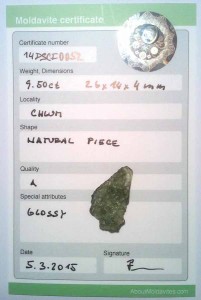 Moldavite certificate
Certificate number
14DSCF0052
Weight, Dimensions
9.50ct 26x14x4 mm
Locality
CHLUM
Shape
NATURAL PIECE
Quality
A
Special attributes
GLOSSY
Date
Signature
5.3.2015
AboutMoldavites.com